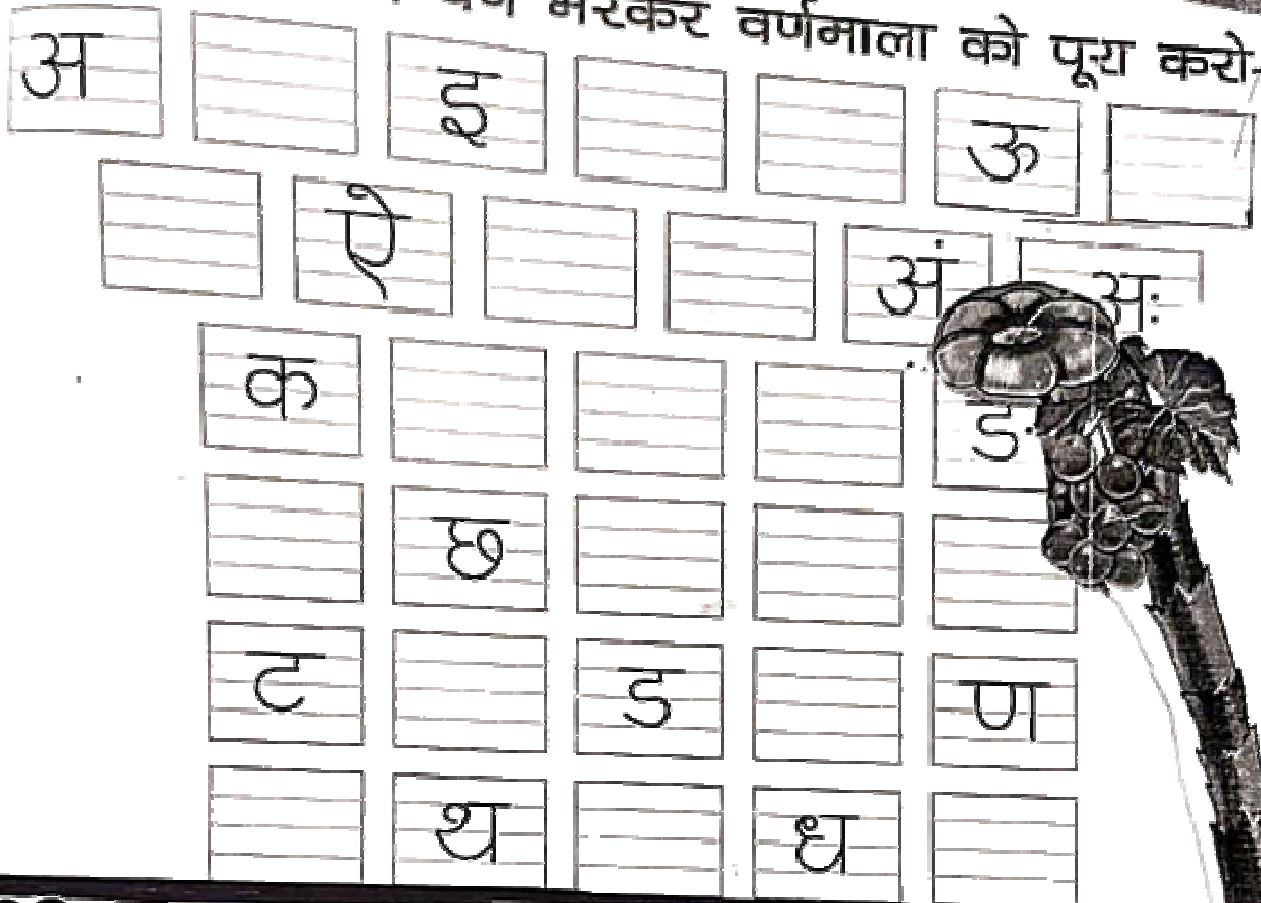 भरकर वर्णमाला को पूरा करो-
अ इ ऊ
ऐ अं अः
क ङ
छ
ट ड ण
थ ध